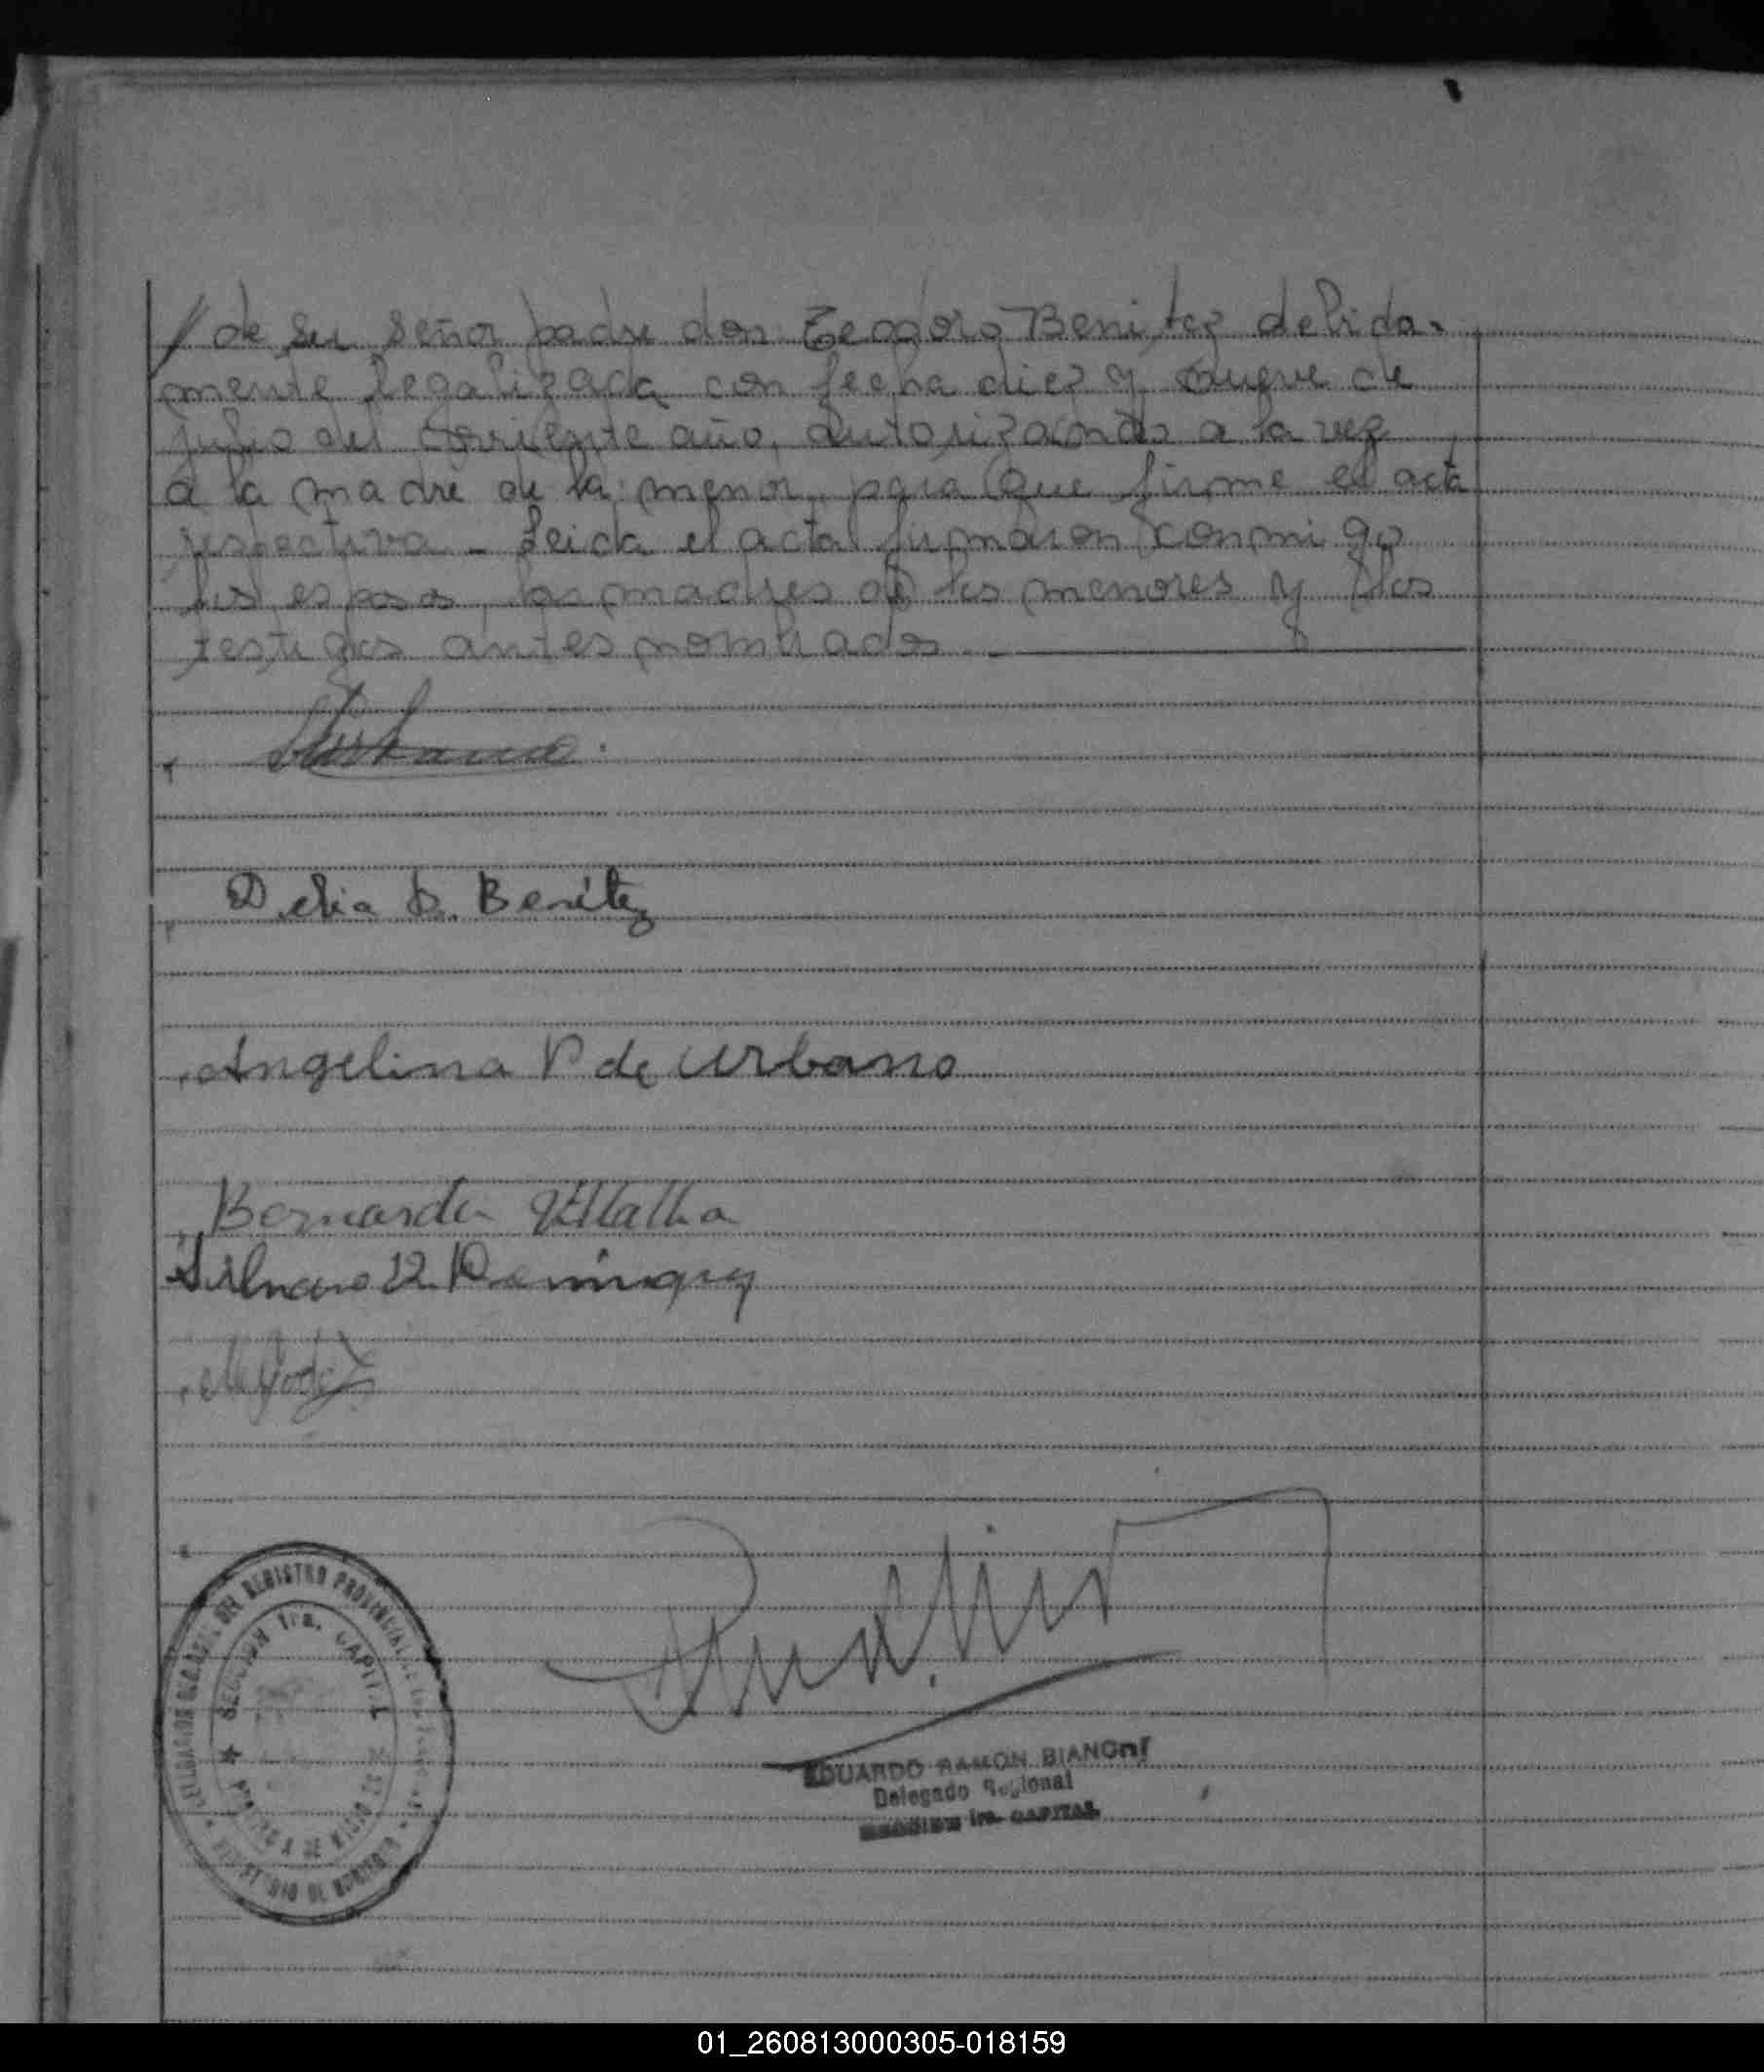 de su señor padre don Teodoro Benitez debida-
mente legalizada con fecha diez y nueve de
julio del corriente año, autorizando a la vez
a la madre de la menor, para que firme el acta
respectiva. - Leida el acta firmaron conmigo
los esposos, las madres de los menores y los
testigos antes nombrados.
Delia D. Benítez
Angelina V de Urbano
Bernarda Villalba
REGISTRO PROVINCIAL
SECCION 1ra. CAPITAL
MINISTERIO DE GOBIERNO
EDUARDO RAMON BIANCHI
Delegado Regional
SECCION 1ra. CAPITAL
01_260813000305-018159